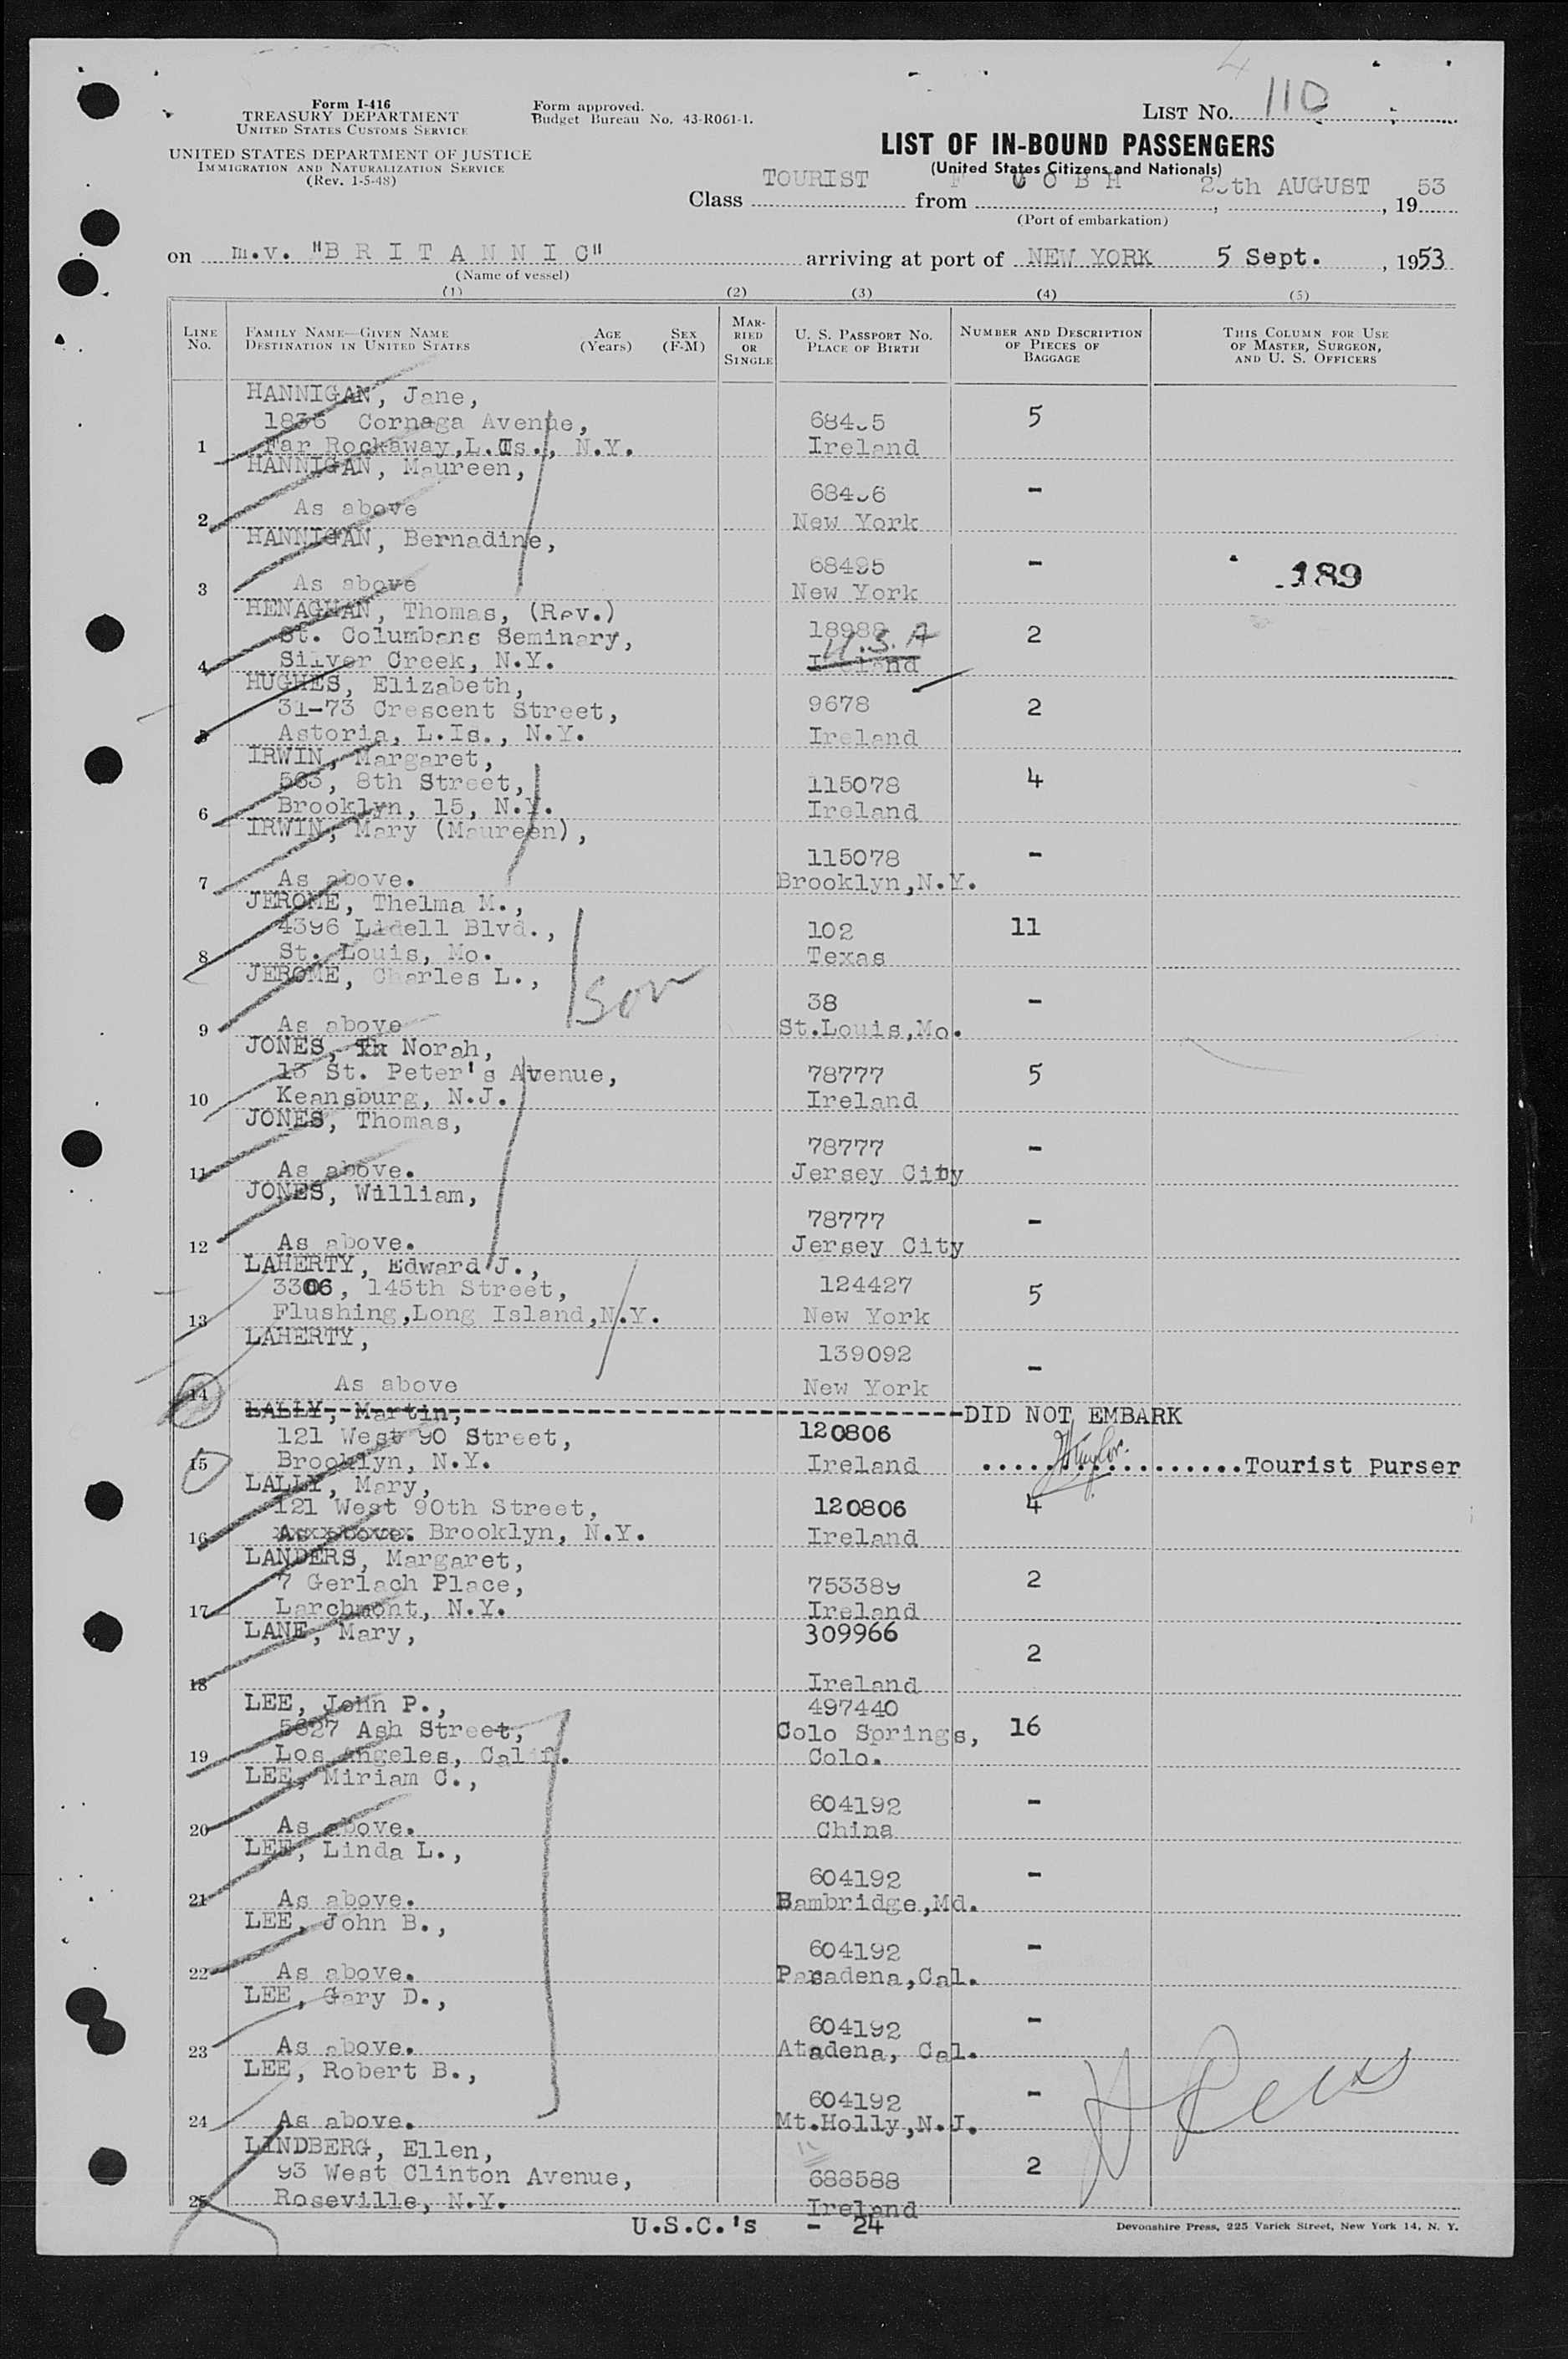 Form I-416
TREASURY DEPARTMENT
UNITED STATES CUSTOMS SERVICE
UNITED STATES DEPARTMENT OF JUSTICE
IMMIGRATION AND NATURALIZATION SERVICE
(Rev. 1-5-48)
Form approved.
Budget Bureau No. 43-R061-1.
LIST No. 110
LIST OF IN-BOUND PASSENGERS
(United States Citizens and Nationals)
Class TOURIST from COBH, AUGUST, 1953
(Port of embarkation)
on m.v. "BRITANNIC" arriving at port of NEW YORK 5 Sept., 1953
(Name of vessel)
(1) (2) (3) (4) (5)
LINE No.
FAMILY NAME—GIVEN NAME
DESTINATION IN UNITED STATES
AGE (Years)
SEX (F-M)
MARRIED OR SINGLE
U. S. PASSPORT NO.
PLACE OF BIRTH
NUMBER AND DESCRIPTION OF PIECES OF BAGGAGE
THIS COLUMN FOR USE OF MASTER, SURGEON, AND U. S. OFFICERS
HANNIGAN, Jane,
Cornaga Avenue, 5
1 Far Rockaway, N.Y. Ireland
HANNIGAN, Maureen,
-
2 As above New York
HANNIGAN, Bernadine,
68495 -
3 As above New York
189
HENAGHAN, Thomas, (Rev.)
St. Columbans Seminary, U.S.A 2
4 Silver Creek, N.Y. Ireland
HUGHES, Elizabeth,
31-73 Crescent Street, 9678 2
5 Astoria, L.Is., N.Y. Ireland
IRWIN, Margaret,
563, 8th Street, 115078 4
6 Brooklyn, 15, N.Y. Ireland
IRWIN, Mary (Maureen),
115078 -
7 As above. Brooklyn,N.Y.
JEROME, Thelma M.,
4396 Lidell Blvd., 102 11
8 St. Louis, Mo. Texas
JEROME, Charles L.,
son
38 -
9 As above St.Louis,Mo.
JONES, Norah,
St. Peter's Avenue, 78777 5
10 Keansburg, N.J. Ireland
JONES, Thomas,
78777 -
11 As above. Jersey City
JONES, William,
78777 -
12 As above. Jersey City
LAHERTY, Edward J.,
3306, 145th Street, 124427 5
13 Flushing,Long Island,N.Y. New York
LAHERTY,
139092 -
14 As above New York
LALLY, Martin, DID NOT EMBARK
121 West 90 Street, 120806
15 Brooklyn, N.Y. Ireland Taylor. Tourist Purser
LALLY, Mary,
121 West 90th Street, 120806 4
16 As above. Brooklyn, N.Y. Ireland
LANDERS, Margaret,
7 Gerlach Place, 753389 2
17 Larchmont, N.Y. Ireland
LANE, Mary, 309966
2
18 Ireland
LEE, John P., 497440
5627 Ash Street, Colo Springs, 16
19 Los Angeles, Calif. Colo.
LEE, Miriam C.,
604192 -
20 As above. China
LEE, Linda L.,
604192 -
21 As above. Bambridge,Md.
LEE, John B.,
604192 -
22 As above. Pasadena,Cal.
LEE, Gary D.,
604192 -
23 As above. Atadena, Cal.
LEE, Robert B.,
604192 -
24 As above. Mt.Holly,N.J.
LINDBERG, Ellen,
93 West Clinton Avenue, 688588 2
25 Roseville, N.Y. Ireland
U.S.C.'s - 24
Devonshire Press, 225 Varick Street, New York 14, N. Y.